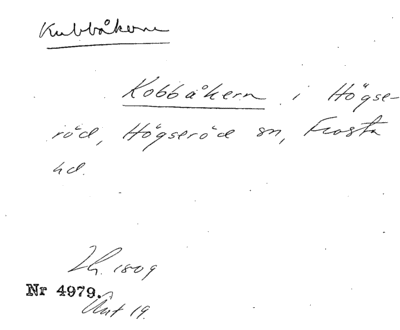 Kubbåkern
Kobbåkern i Högse-
röd, Högseröd sn, Frosta
hd.
Lh. 1809
Nr 4979.
Akt 19.